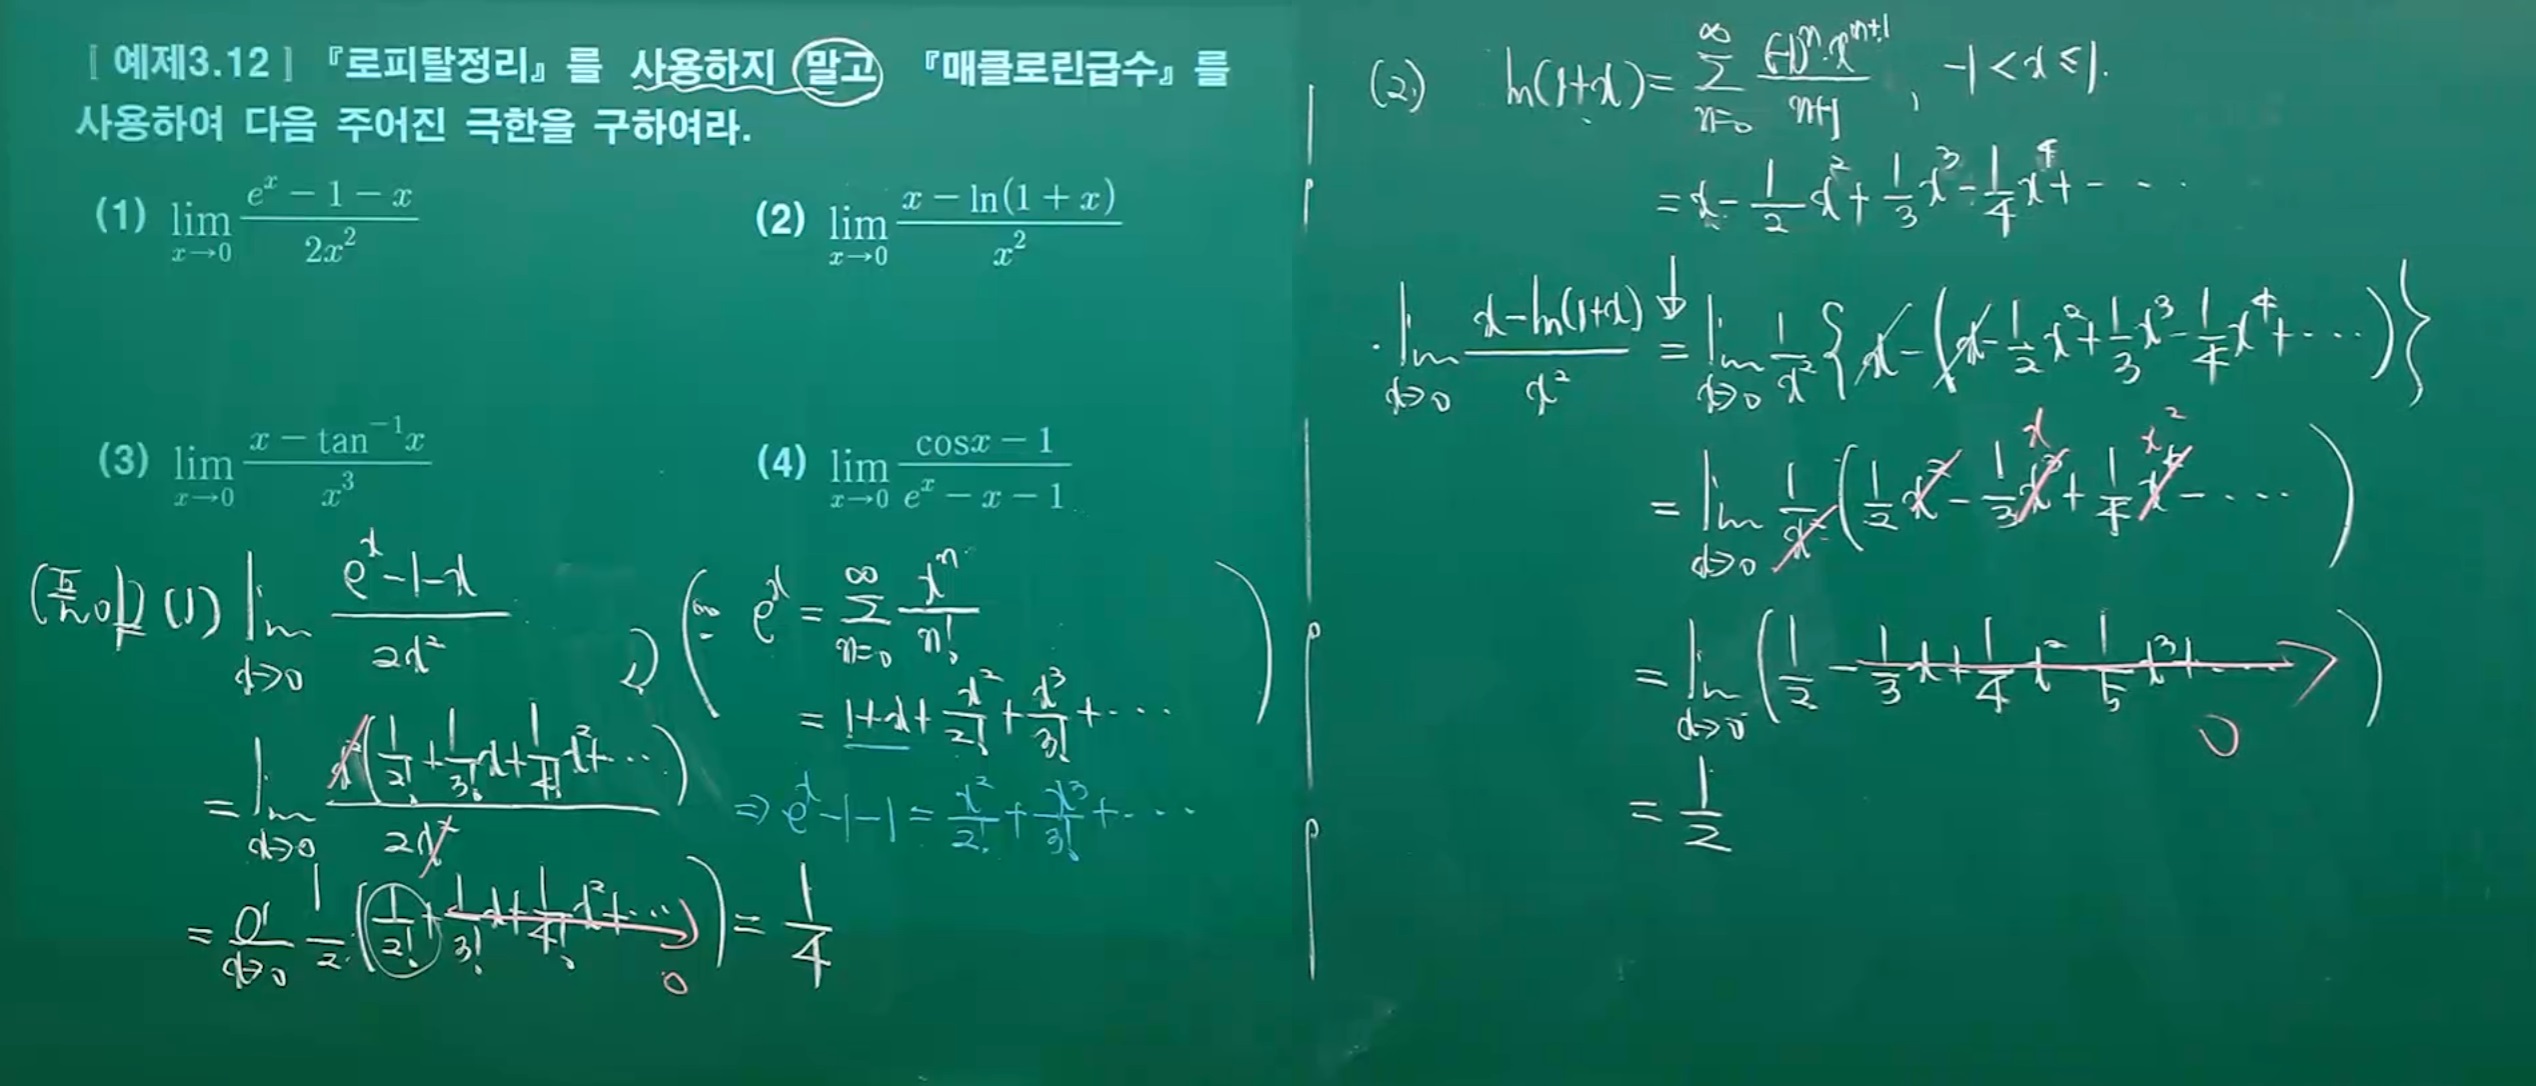 [ 예제3.12 ] 『로피탈정리』를 사용하지 말고 『매클로린급수』를
사용하여 다음 주어진 극한을 구하여라.
(1) lim_{x→0} (e^x − 1 − x)/(2x^2)
(2) lim_{x→0} (x − ln(1 + x))/(x^2)
(3) lim_{x→0} (x − tan^{−1}x)/(x^3)
(4) lim_{x→0} (cosx − 1)/(e^x − x − 1)
(풀이) (1) lim_{x→0} (e^x − 1 − x)/(2x^2)
= lim_{x→0} x^2(1/2! + 1/3! x + 1/4! x^2 + ⋯)/(2x^2)
= lim_{x→0} 1/2 · (1/2! + 1/3! x + 1/4! x^2 + ⋯) = 1/4
0
(∵ e^x = Σ_{n=0}^{∞} x^n/n!
= 1 + x + x^2/2! + x^3/3! + ⋯ )
⇒ e^x − 1 − 1 = x^2/2! + x^3/3! + ⋯
(2) ln(1+x) = Σ_{n=0}^{∞} (−1)^n · x^{n+1}/(n+1) , −1 < x ≤ 1.
= x − 1/2 x^2 + 1/3 x^3 − 1/4 x^4 + ⋯
· lim_{x→0} (x − ln(1+x))/x^2 = lim_{x→0} 1/x^2 { x − (x − 1/2 x^2 + 1/3 x^3 − 1/4 x^4 + ⋯) }
x x^2
= lim_{x→0} 1/x^2 (1/2 x^2 − 1/3 x^3 + 1/4 x^4 − ⋯ )
= lim_{x→0} (1/2 − 1/3 x + 1/4 x^2 − 1/5 x^3 + ⋯ )
0
= 1/2